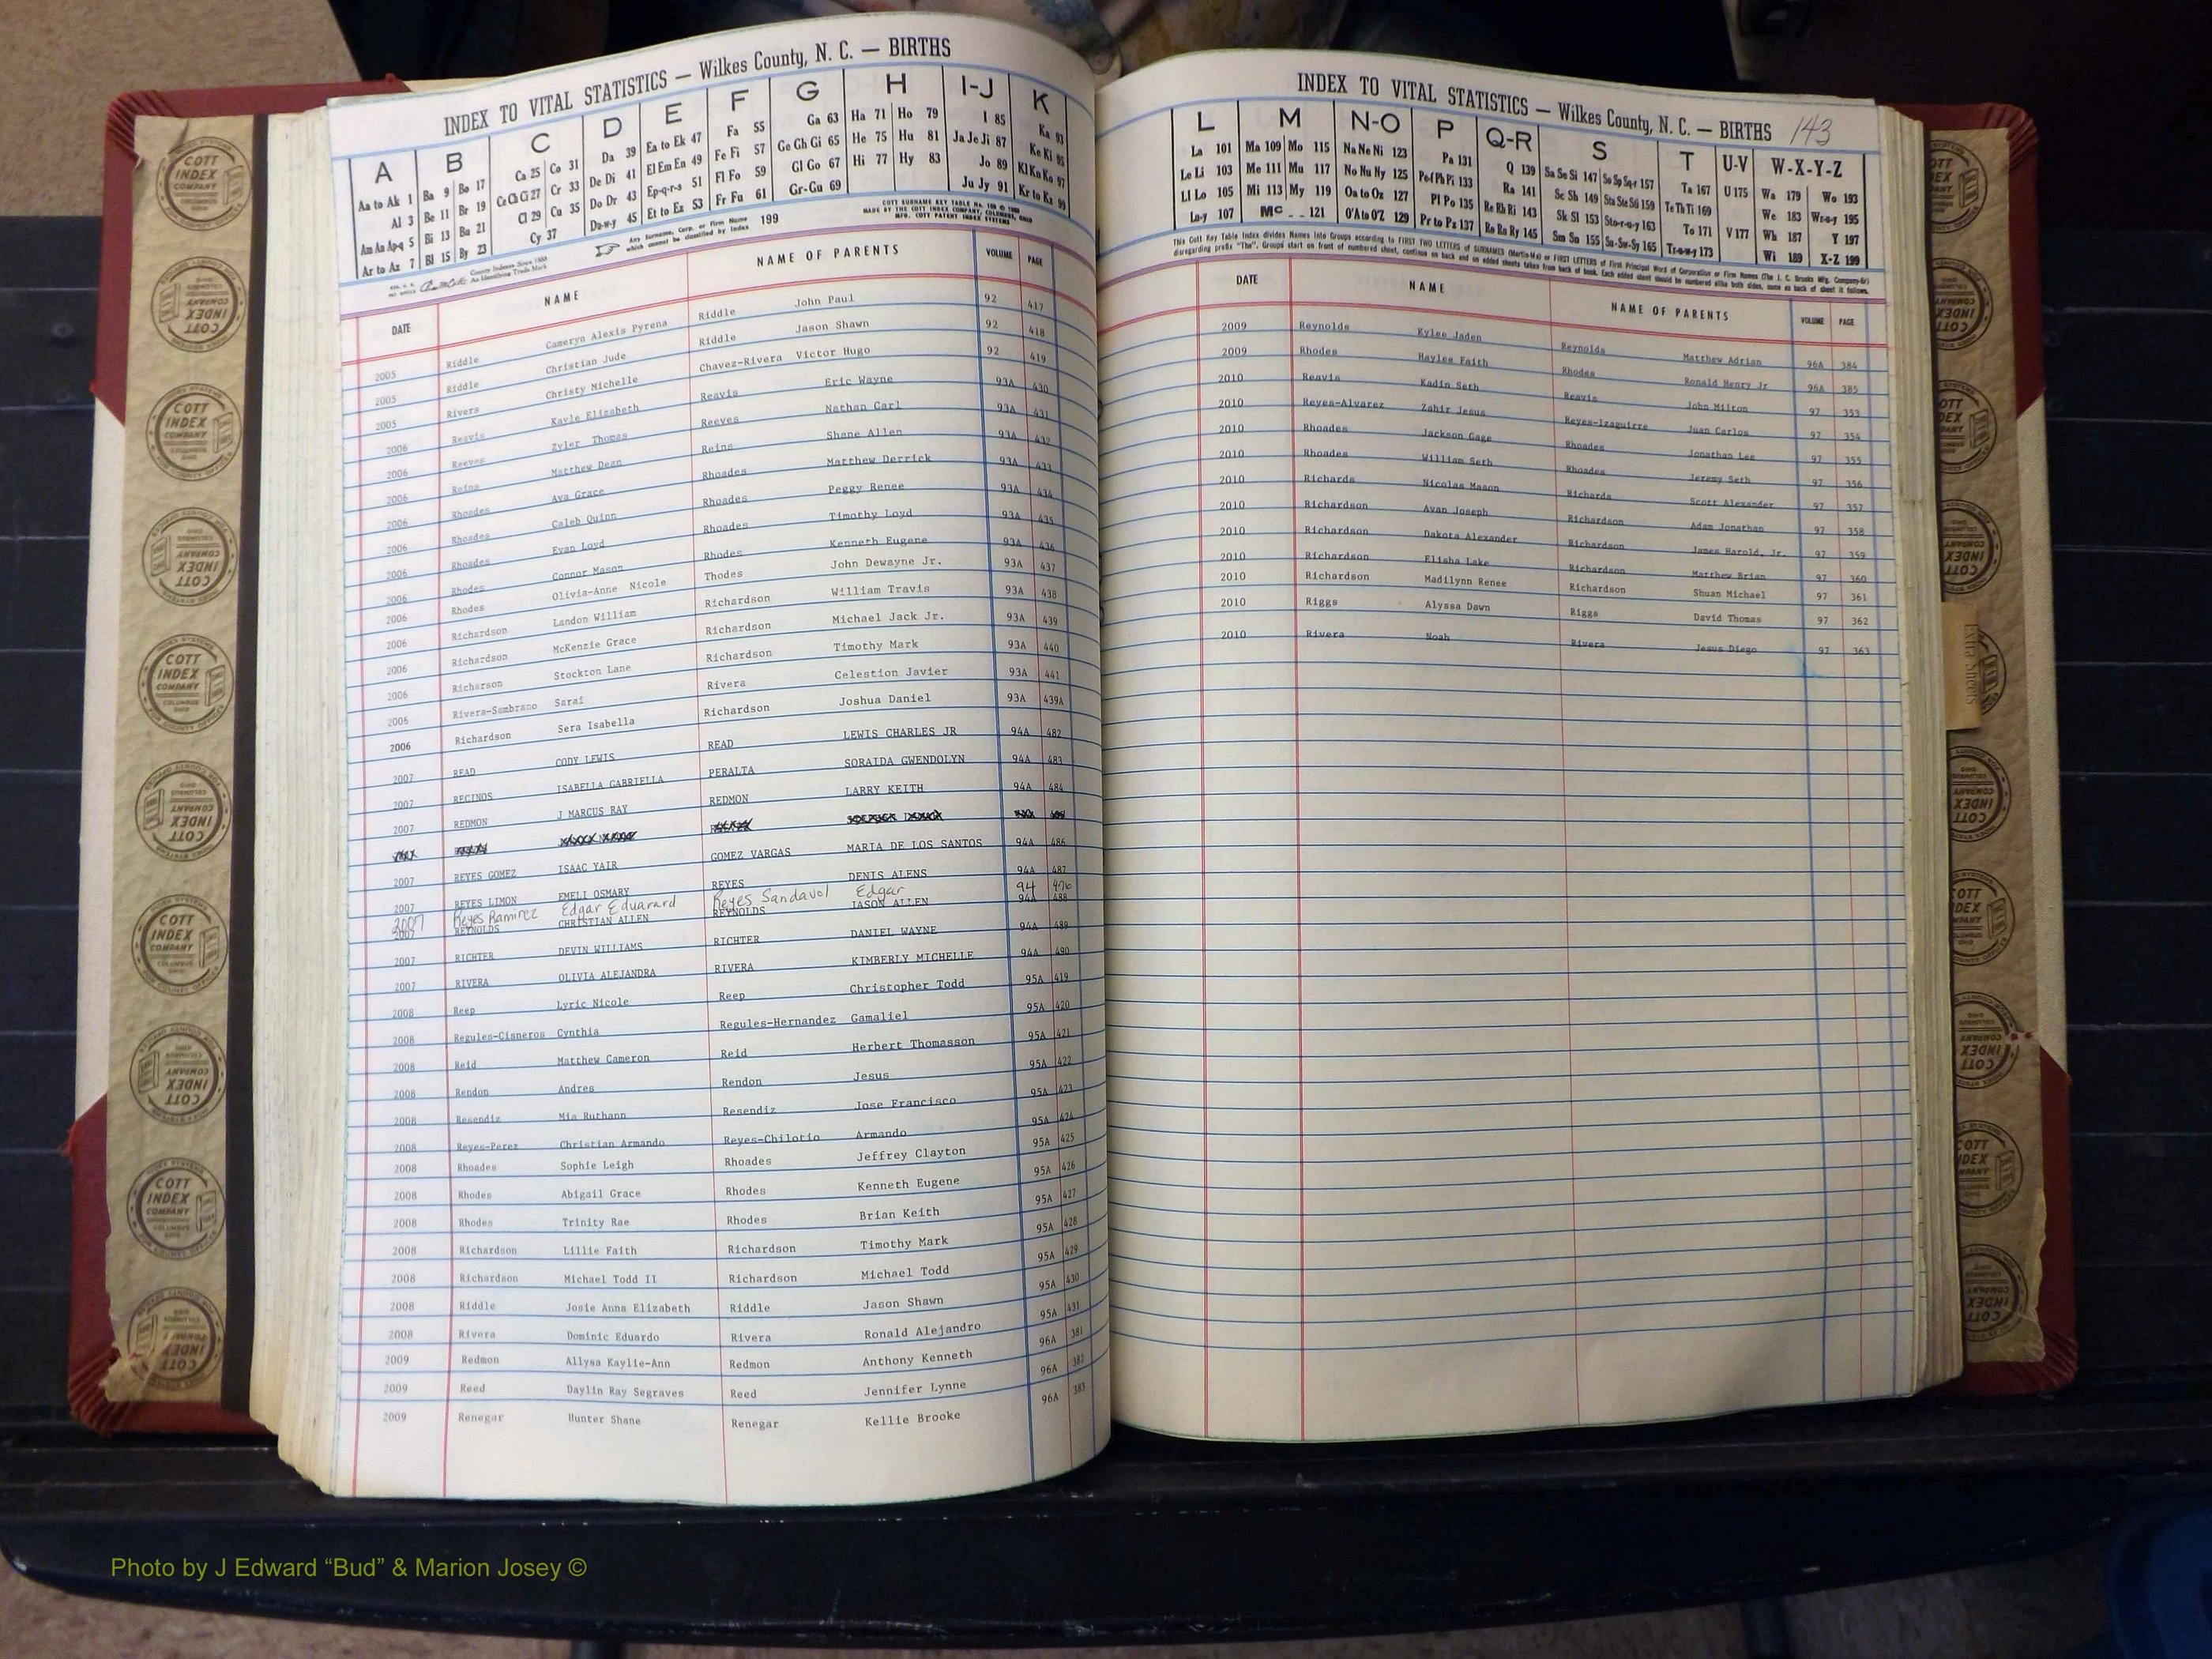 INDEX TO VITAL STATISTICS — Wilkes County, N. C. — BIRTHS
A B C D E F G H I-J K
Aa to Ak 1 Ba 9 Bo 17 Ca 25 Co 31 Da 39 Ea to Ek 47 Fa 55 Ga 63 Ha 71 Ho 79 I 85 Ka 93
Al 3 Be 11 Br 19 Ce Ch Ci 27 Cr 33 De Di 41 El Em En 49 Fe Fi 57 Ge Gh Gi 65 He 75 Hu 81 Ja Je Ji 87 Ke Ki 95
Am An Ap-q 5 Bi 13 Bu 21 Cl 29 Cu 35 Do Dr 43 Ep-q-r-s 51 Fl Fo 59 Gl Go 67 Hi 77 Hy 83 Jo 89 Kl Kn Ko 97
Ar to Az 7 Bl 15 By 23 Cy 37 Du-w-y 45 Et to Ez 53 Fr Fu 61 Gr-Gu 69 Ju Jy 91 Kr to Kz 99
Any Surname, Corp. or Firm Name which cannot be classified by Index 199
COTT SURNAME KEY TABLE
MADE BY THE COTT INDEX COMPANY, COLUMBUS, OHIO
DATE NAME NAME OF PARENTS VOLUME PAGE
2005 Riddle Cameryn Alexis Pyrena Riddle John Paul 92 417
2005 Riddle Christian Jude Riddle Jason Shawn 92 418
2005 Rivers Christy Michelle Chavez-Rivera Victor Hugo 92 419
2006 Reavis Kayle Elizabeth Reavis Eric Wayne 93A 430
2006 Reeves Zyler Thomas Reeves Nathan Carl 93A 431
2006 Reins Matthew Dean Reins Shane Allen 93A 432
2006 Rhoades Ava Grace Rhoades Matthew Derrick 93A 433
2006 Rhoades Caleb Quinn Rhoades Peggy Renee 93A 434
2006 Rhoades Evan Loyd Rhoades Timothy Loyd 93A 435
2006 Rhodes Connor Mason Rhodes Kenneth Eugene 93A 436
2006 Rhodes Olivia-Anne Nicole Thodes John Dewayne Jr. 93A 437
2006 Richardson Landon William Richardson William Travis 93A 438
2006 Richardson McKenzie Grace Richardson Michael Jack Jr. 93A 439
2006 Richarson Stockton Lane Richardson Timothy Mark 93A 440
2006 Rivera-Sambrano Sarai Rivera Celestion Javier 93A 441
2006 Richardson Sera Isabella Richardson Joshua Daniel 93A 439A
2007 READ CODY LEWIS READ LEWIS CHARLES JR 94A 482
2007 RECINOS ISABELLA GABRIELLA PERALTA SORAIDA GWENDOLYN 94A 483
2007 REDMON J MARCUS RAY REDMON LARRY KEITH 94A 484
2007 REYES GOMEZ ISAAC YAIR GOMEZ VARGAS MARIA DE LOS SANTOS 94A 486
2007 REYES LIMON EMELI OSMARY REYES DENIS ALENS 94A 487
2007 Reyes Ramirez Edgar Eduarard Reyes Sandavol Edgar 94 476
2007 REYNOLDS CHRISTIAN ALLEN REYNOLDS JASON ALLEN 94A 488
2007 RICHTER DEVIN WILLIAMS RICHTER DANIEL WAYNE 94A 489
2007 RIVERA OLIVIA ALEJANDRA RIVERA KIMBERLY MICHELLE 94A 490
2008 Reep Lyric Nicole Reep Christopher Todd 95A 419
2008 Regules-Cisneros Cynthia Regules-Hernandez Gamaliel 95A 420
2008 Reid Matthew Cameron Reid Herbert Thomasson 95A 421
2008 Rendon Andres Rendon Jesus 95A 422
2008 Resendiz Mia Ruthann Resendiz Jose Francisco 95A 423
2008 Reyes-Perez Christian Armando Reyes-Chilotio Armando 95A 424
2008 Rhoades Sophie Leigh Rhoades Jeffrey Clayton 95A 425
2008 Rhodes Abigail Grace Rhodes Kenneth Eugene 95A 426
2008 Rhodes Trinity Rae Rhodes Brian Keith 95A 427
2008 Richardson Lillie Faith Richardson Timothy Mark 95A 428
2008 Richardson Michael Todd II Richardson Michael Todd 95A 429
2008 Riddle Josie Anna Elizabeth Riddle Jason Shawn 95A 430
2008 Rivera Dominic Eduardo Rivera Ronald Alejandro 95A 431
2009 Redmon Allysa Kaylie-Ann Redmon Anthony Kenneth 96A 381
2009 Reed Daylin Ray Segraves Reed Jennifer Lynne 96A 382
2009 Renegar Hunter Shane Renegar Kellie Brooke 96A 383
INDEX TO VITAL STATISTICS — Wilkes County, N. C. — BIRTHS 143
L M N-O P Q-R S T U-V W-X-Y-Z
La 101 Ma 109 Mo 115 Na Ne Ni 123 Pa 131 Q 139 Sa Se Si 147 So Sp Sq-r 157 Ta 167 U 175 Wa 179 Wo 193
Le Li 103 Me 111 Mu 117 No Nu Ny 125 Pe-f Ph Pi 133 Ra 141 Sc Sh 149 Sta Ste Sti 159 Te Th Ti 169 We 183 Wr-o-y 195
Ll Lo 105 Mi 113 My 119 Oa to Oz 127 Pl Po 135 Re Rh Ri 143 Sk Sl 153 Sto-r-u-y 163 To 171 V 177 Wh 187 Y 197
Lu-y 107 Mc 121 O'A to O'Z 129 Pr to Pz 137 Ro Ru Ry 145 Sm Sn 155 Su-Sw-Sy 165 Tr-u-w-y 173 Wi 189 X-Z 199
This Cott Key Table Index divides Names into Groups according to FIRST TWO LETTERS of SURNAMES (Martin-Ma) or FIRST LETTERS of First Principal Word of Corporation or Firm Names (The J. C. Brooks Mfg. Company-Br)
disregarding prefix "The". Groups start on front of numbered sheet, continue on back and on added sheets taken from back of book. Each added sheet should be numbered alike both sides, same as back of sheet it follows.
DATE NAME NAME OF PARENTS VOLUME PAGE
2009 Reynolds Kylee Jaden Reynolds Matthew Adrian 96A 384
2009 Rhodes Haylee Faith Rhodes Ronald Henry Jr 96A 385
2010 Reavis Kadin Seth Reavis John Milton 97 353
2010 Reyes-Alvarez Zahir Jesus Reyes-Izaguirre Juan Carlos 97 354
2010 Rhoades Jackson Gage Rhoades Jonathan Lee 97 355
2010 Rhoades William Seth Rhoades Jeremy Seth 97 356
2010 Richards Nicolas Mason Richards Scott Alexander 97 357
2010 Richardson Avan Joseph Richardson Adam Jonathan 97 358
2010 Richardson Dakota Alexander Richardson James Harold, Jr. 97 359
2010 Richardson Elisha Lake Richardson Matthew Brian 97 360
2010 Richardson Madilynn Renee Richardson Shuan Michael 97 361
2010 Riggs Alyssa Dawn Riggs David Thomas 97 362
2010 Rivera Noah Rivera Jesus Diego 97 363
Extra Sheets
COTT INDEX COMPANY
Photo by J Edward “Bud” & Marion Josey ©